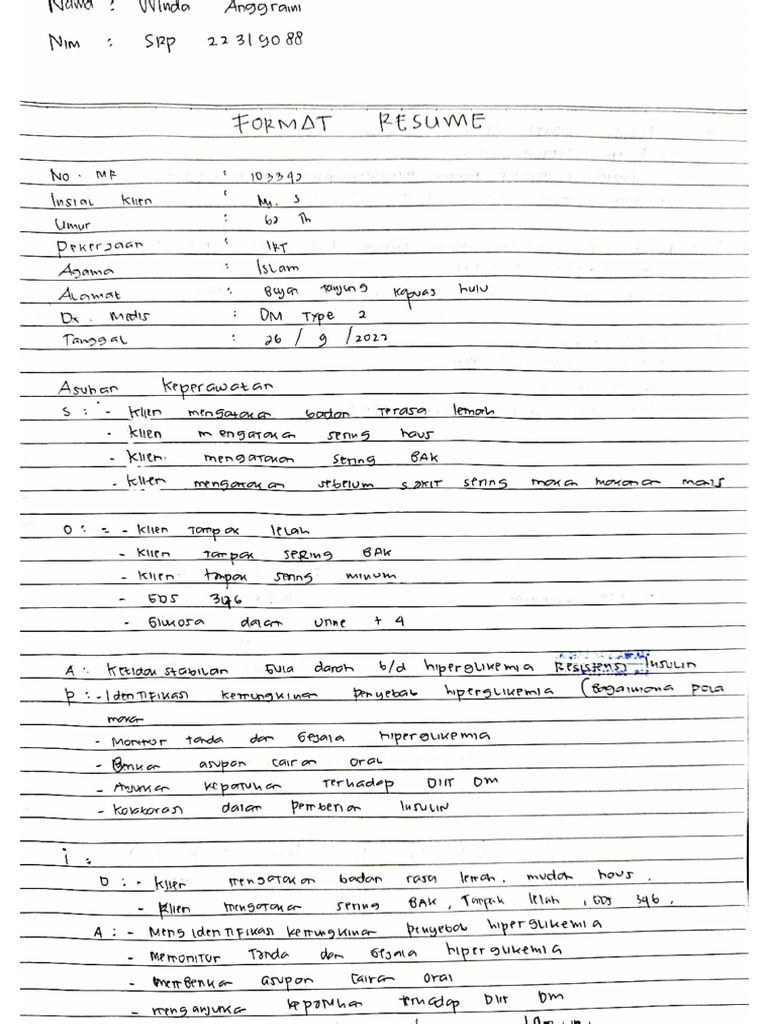 Nama : Winda Anggraini
Nim : SRP 22319088
FORMAT RESUME
No. MR : 103392
Insial Klien : Ny. S
Umur : 62 Th
Pekerjaan : IRT
Agama : Islam
Alamat : Bujan Tanjung Kapuas hulu
Dx. Medis : DM Type 2
Tanggal : 26 / 9 / 2022
Asuhan Keperawatan
S : - Klien mengatakan badan terasa lemah
- Klien mengatakan sering haus
- Klien mengatakan sering BAK
- Klien mengatakan sebelum sakit sering makan makanan manis
O : = - Klien tampak lelah
- Klien tampak sering BAK
- Klien tampak sering minum
- GDS 396
- Glukosa dalam urine + 4
A : Ketidak stabilan gula darah b/d hiperglikemia Resistensi Insulin
P : - Identifikasi kemungkinan penyebab hiperglikemia (Bagaimana pola
makan
- Monitor tanda dan Gejala hiperglikemia
- Berikan asupan cairan oral
- Anjurkan kepatuhan terhadap DIIT DM
- Kolaborasi dalam pemberian Insulin
i :
D : - Klien mengatakan badan rasa lemah, mudah haus.
- Klien mengatakan sering BAK, Tampak lelah, GDS 396.
A : - Mengidentifikasi kemungkinan penyebab hiperglikemia
- Memonitor Tanda dan Gejala hiperglikemia
- Memberikan asupan cairan oral
- menganjurkan kepatuhan terhadap DIIT DM